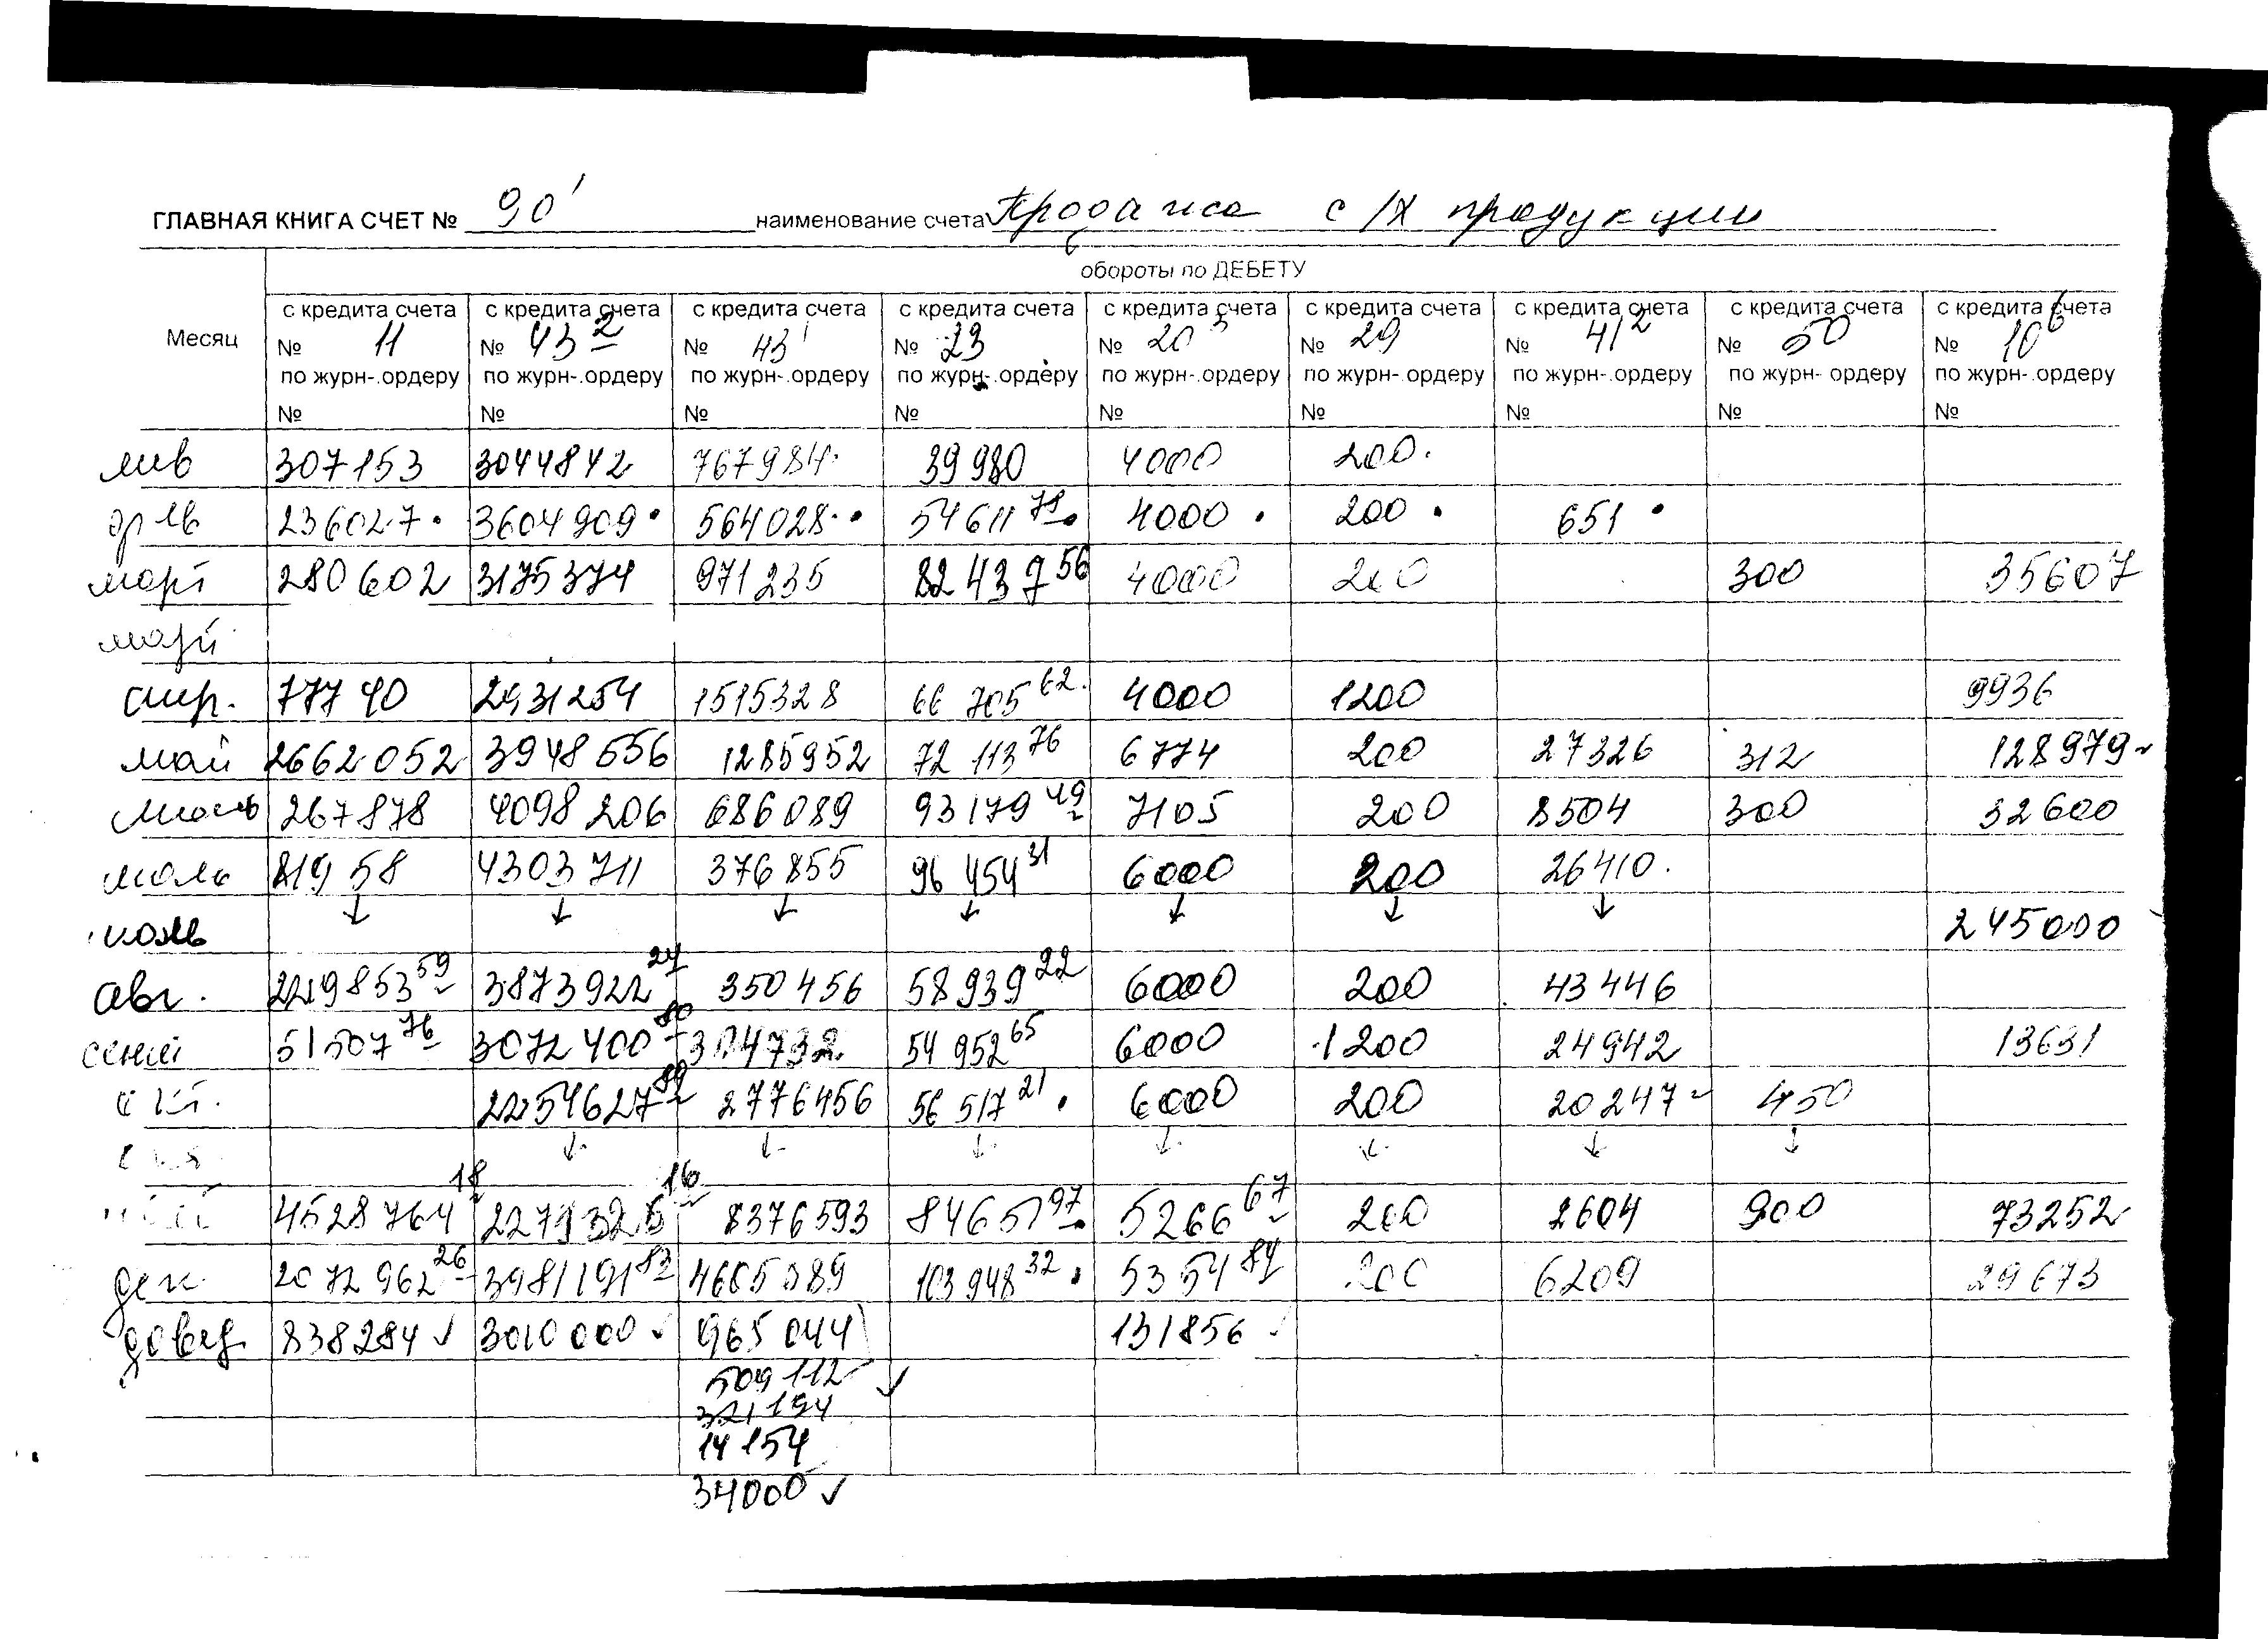 ГЛАВНАЯ КНИГА СЧЕТ № 90' наименование счета Продажа с/х продукции
обороты по ДЕБЕТУ
Месяц
с кредита счета с кредита счета с кредита счета с кредита счета с кредита счета с кредита счета с кредита счета с кредита счета с кредита счета
№ 11 № 43 2 № 43 1 № 23 № 20 3 № 29 № 41 2 № 50 № 10 6
по журн-.ордеру по журн-.ордеру по журн-.ордеру по журн-.ордеру по журн-.ордеру по журн-.ордеру по журн-.ордеру по журн- ордеру по журн-.ордеру
№ № № № № № № № №
янв 307153 3044842 767984 39980 4000 200.
февр 236027. 3604909. 564028. 54611 4000. 200. 651.
март 280602 3175374 971235 82437 56 4000 200 300 35607
март
апр. 77740 2931254 1515328 66 705 62 4000 1200 9936
май 2662052 3948556 1285952 72 113 76 6774 200 27326 312 128979
июнь 267878 4098206 686089 93179 49 7105 200 8504 300 32600
июль 81958 4303711 376855 96 454 31 6000 200 26410.
↓ ↓ ↓ ↓ ↓ ↓ ↓
июль 245000
авг. 2219853 59 3873922 24 350456 58939 22 6000 200 43446
сент 51507 76 3072400 80 304732 54 952 65 6000 1200 24942 13631
окт. 2254627 89 2776456 56 517 21. 6000 200 20247 450
↓ ↓ ↓ ↓ ↓ ↓ ↓
4528764 18 16 8376593 84651 97 5266 67 200 2604 900 73252
дек 2072962 26 3981191 83 4605089 103948 32. 5354 84 200 6209 29673
838284 ✓ 3010000 ✓ 965044 131856 ✓
509112 ✓
321154
14154
34000 ✓